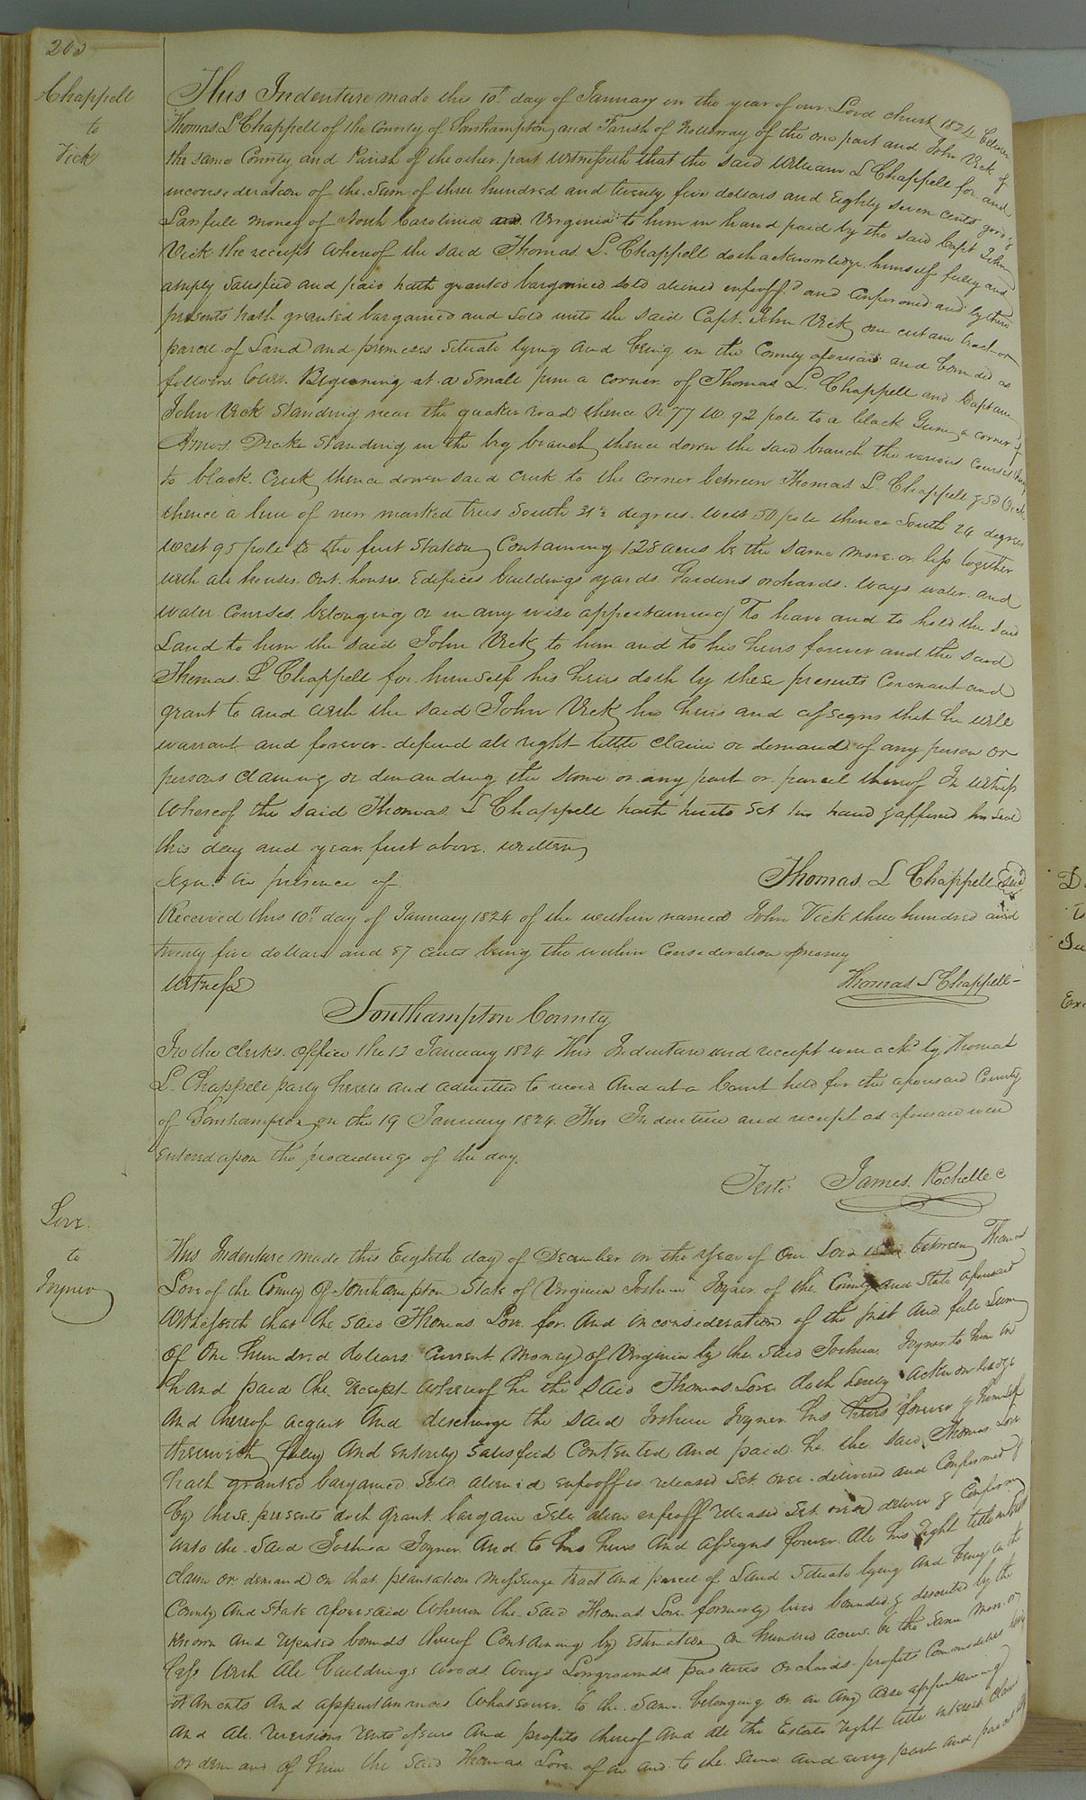 203
Chappell
to
Vick
This Indenture made this 10th day of January in the year of our Lord christ 1824 between
Thomas L Chappell of the County of Southampton and Parish of Nottoway of the one part and John Vick of
the same County and Parish of the other part Witnesseth that the said William L Chappell for and
inconsideration of the sum of three hundred and twenty five dollars and Eighty seven cents good &
Lawfull money of North Carolinia and Virginia to him in hand paid by the said Capt John
Vick the receipt whereof the said Thomas L. Chappell doth acknowledge himself fully and
amply satisfied and paid hath granted bargained sold aliened enfeoff'd and Confirmed and by these
presents hath granted bargained and sold unto the said Capt. John Vick one certain tract or
parcel of Land and premises situate lying and being in the County aforesaid and bounded as
follows Beginning at a small pine a corner of Thomas L. Chappell and Captain
John Vick standing near the quaker road thence N 77 W 92 pole to a black Gum a corner of
Amos Drake standing in the big branch thence down the said branch the various courses
to black Creek thence down said creek to the corner between Thomas L. Chappell & sd Vick
thence a line of new marked trees South 31½ degrees West 50 pole thence South 24 degrees
West 95 pole to the first Station Containing 128 acres be the same more or less together
with all houses Out houses Edifices buildings yards Gardens orchards ways water and
water courses belonging or in any wise appertaining To have and to hold the said
Land to him the said John Vick to him and to his heirs forever and the said
Thomas L Chappell for himself his heirs doth by these presents Covenant and
grant to and with the said John Vick his heirs and assigns that he will
warrant and forever defend all right tittle claim or demand of any person or
persons claiming or demanding the same or any part or parcel thereof In Witness
whereof the said Thomas L Chappell hath hereto set his hand & affixed his seal
this day and year first above written
Sign. in presence of
Thomas L Chappell Seal
Received this 10th day of January 1824 of the within named John Vick three hundred and
twenty five dollars and 87 cents being the within Consideration money
Witness
Thomas L Chappell
Southampton County
In the clerks office the 12 January 1824 This Indenture and receipt were ackd by Thomas
L. Chappell party hereto and admitted to record And at a Court held for the aforesaid County
of Southampton on the 19 January 1824 This Indenture and receipt as aforesaid were
Entered upon the proceedings of the day.
Teste James Rochelle C
Love
to
Joyner
This Indenture made this Eighth day of December in the Year of Our Lord between Thomas
Love of the County Of Southampton State of Virginia Joshua Joyner of the County and State aforesaid
Witnesseth that the said Thomas Love for and in consideration of the just and full Sum
Of One hundred dollars Current Money of Virginia by the said Joshua Joyner to him in
hand paid the receipt whereof he the said Thomas Love doth hereby acknowledge
And thereof acquit And discharge the said Joshua Joyner his heirs forever & himself
therewith fully And entirely satisfied Contented And paid he the said Thomas Love
hath granted bargained Sold aliened enfeoffed released Set over delivered and Confirmed &
by these presents doth grant bargain Sell alien enfeoff released Set over deliver & Confirm
unto the said Joshua Joyner And to his heirs And assigns forever All his right title interest
claim or demand on that plantation messuage tract and parcel of Land Situate lying and being in the
County And State aforesaid Whereon the said Thomas Love formerly lived bounded & descrited by the
known and reputed bounds thereof Containing by Estimation one hundred acres be the same more or
less With All buildings Woods Ways Lowgrounds pastures orchards profits Commodities
And appurtanances Whatsoever to the same belonging or in any wise appertaining
And All reversions rents issues And profits thereof And All the Estate right title interest claim
or demand of him the said Thomas Love of in and to the same and every part and parcel